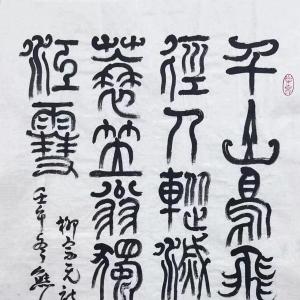 千山鳥飛
徑人蹤滅
蓑笠翁獨
江雪
柳宗元詩
壬午冬